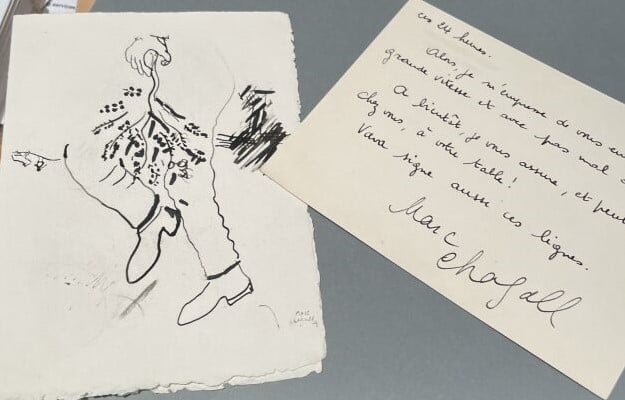 ces 24 heures.
Alors, je m'empresse de vous en
grande vitesse et avec pas mal
A bientôt, je vous assure, et peut
chez vous, à votre table !
Vava signe aussi ces lignes.
Marc
Chagall
Marc
Chagall